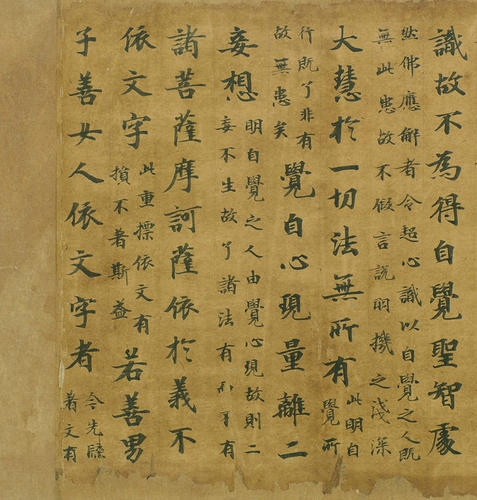 識故不為得自覺聖智處
然佛應解者令超心識以自覺之人既
無此患故不假言說明機之淺深
大慧於一切法無所有
此明自
覺所
行既了非有
故無患矣
覺自心現量離二
妄想
明自覺之人由覺心現故則二
妄不生故了諸法有
諸菩薩摩訶薩依於義不
依文字
此重標依文有
損不著斯益
若善男
子善女人依文字者
令先
著文有